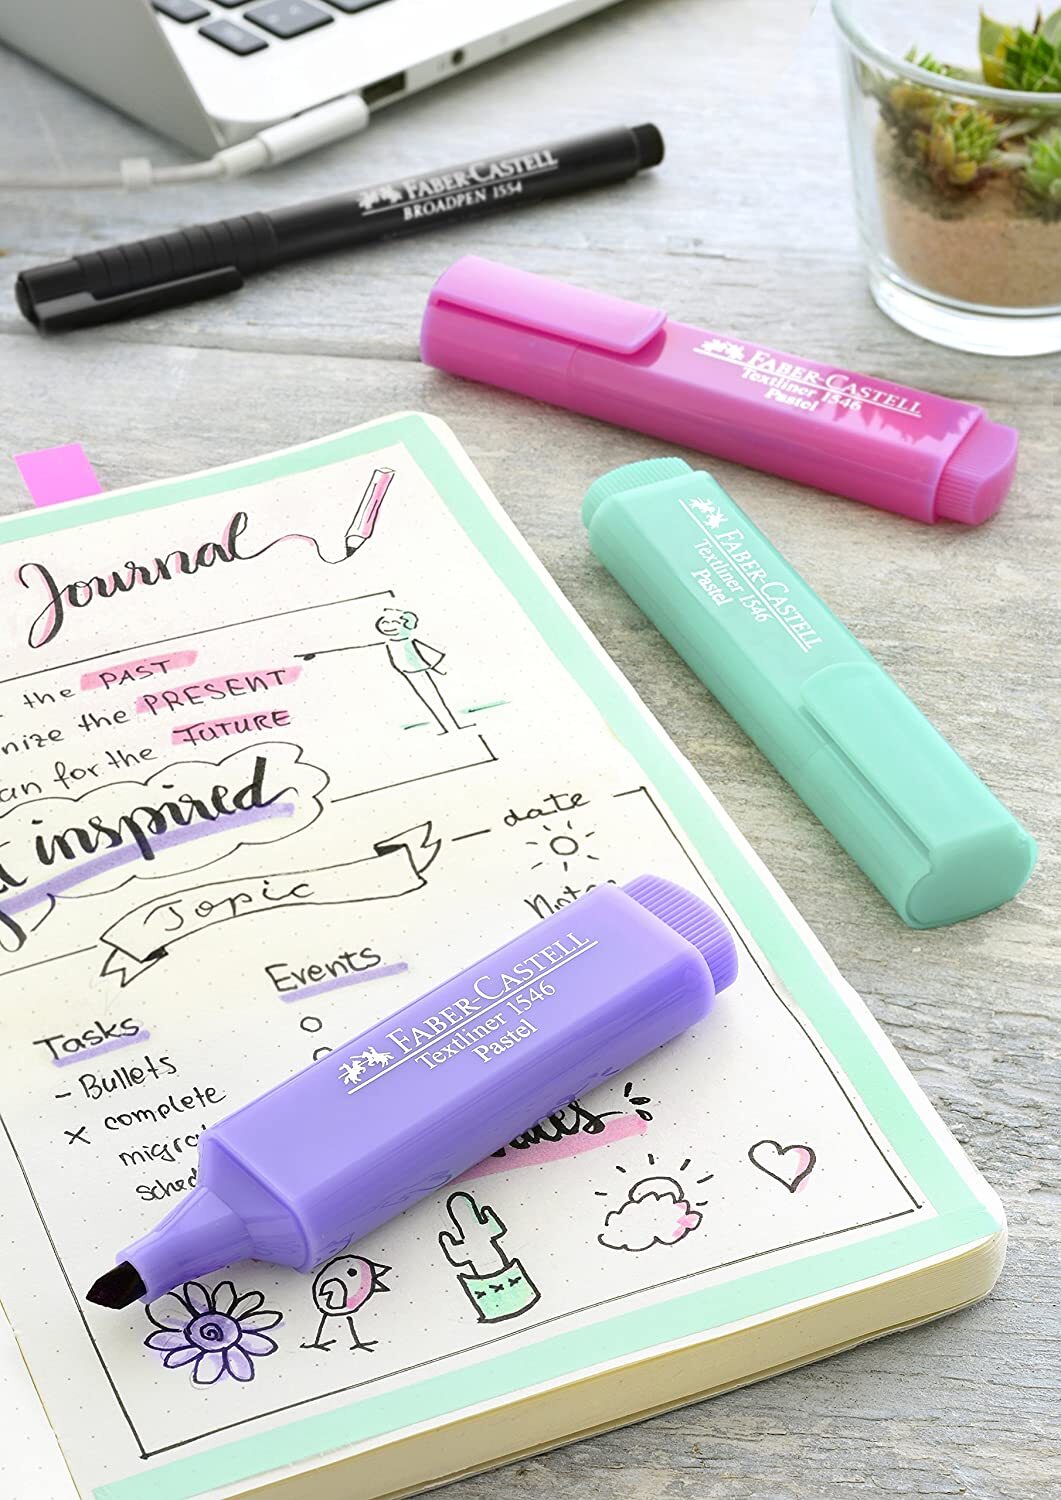 FABER-CASTELL
BROADPEN 1554
FABER-CASTELL
Textliner 1546
Pastel
FABER-CASTELL
Textliner 1546
Pastel
Journal
the PAST
nize the PRESENT
an for the FUTURE
inspired
Topic
date
Events
Tasks
- Bullets
x complete
FABER-CASTELL
Textliner 1546
Pastel